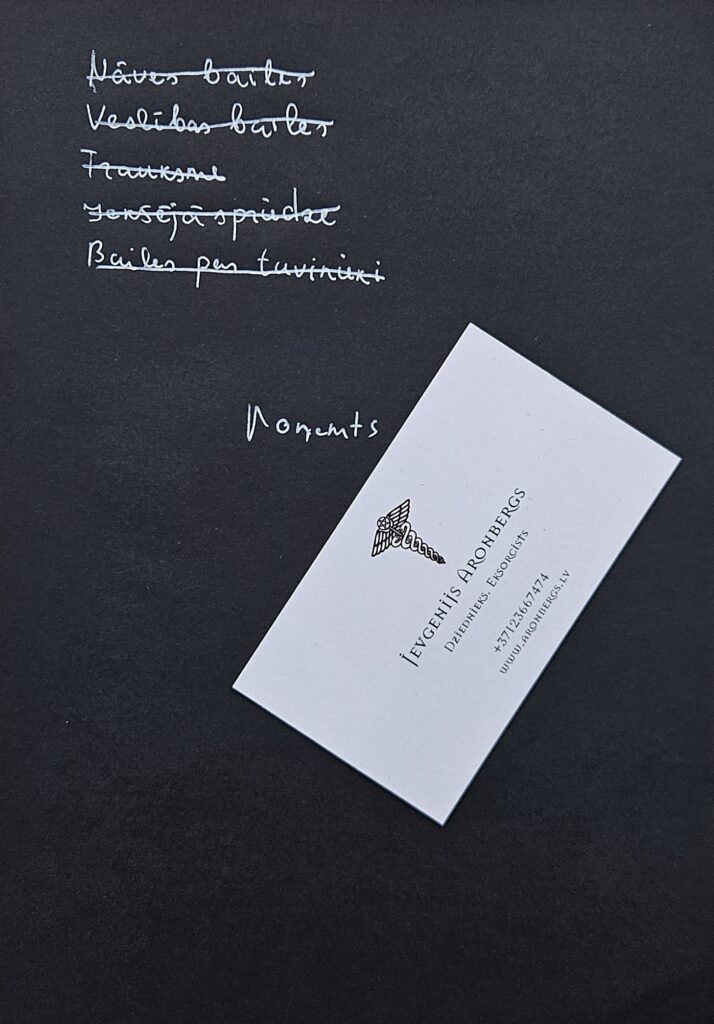 Nāves bailes
Veslības bailes
Trauksme
Iekšējā spriedze
Bailes par tuvinieki
Noņemts
Jevgenijs Aronbergs
Dziednieks, Eksorcists
+37123667474
www.aronbergs.lv